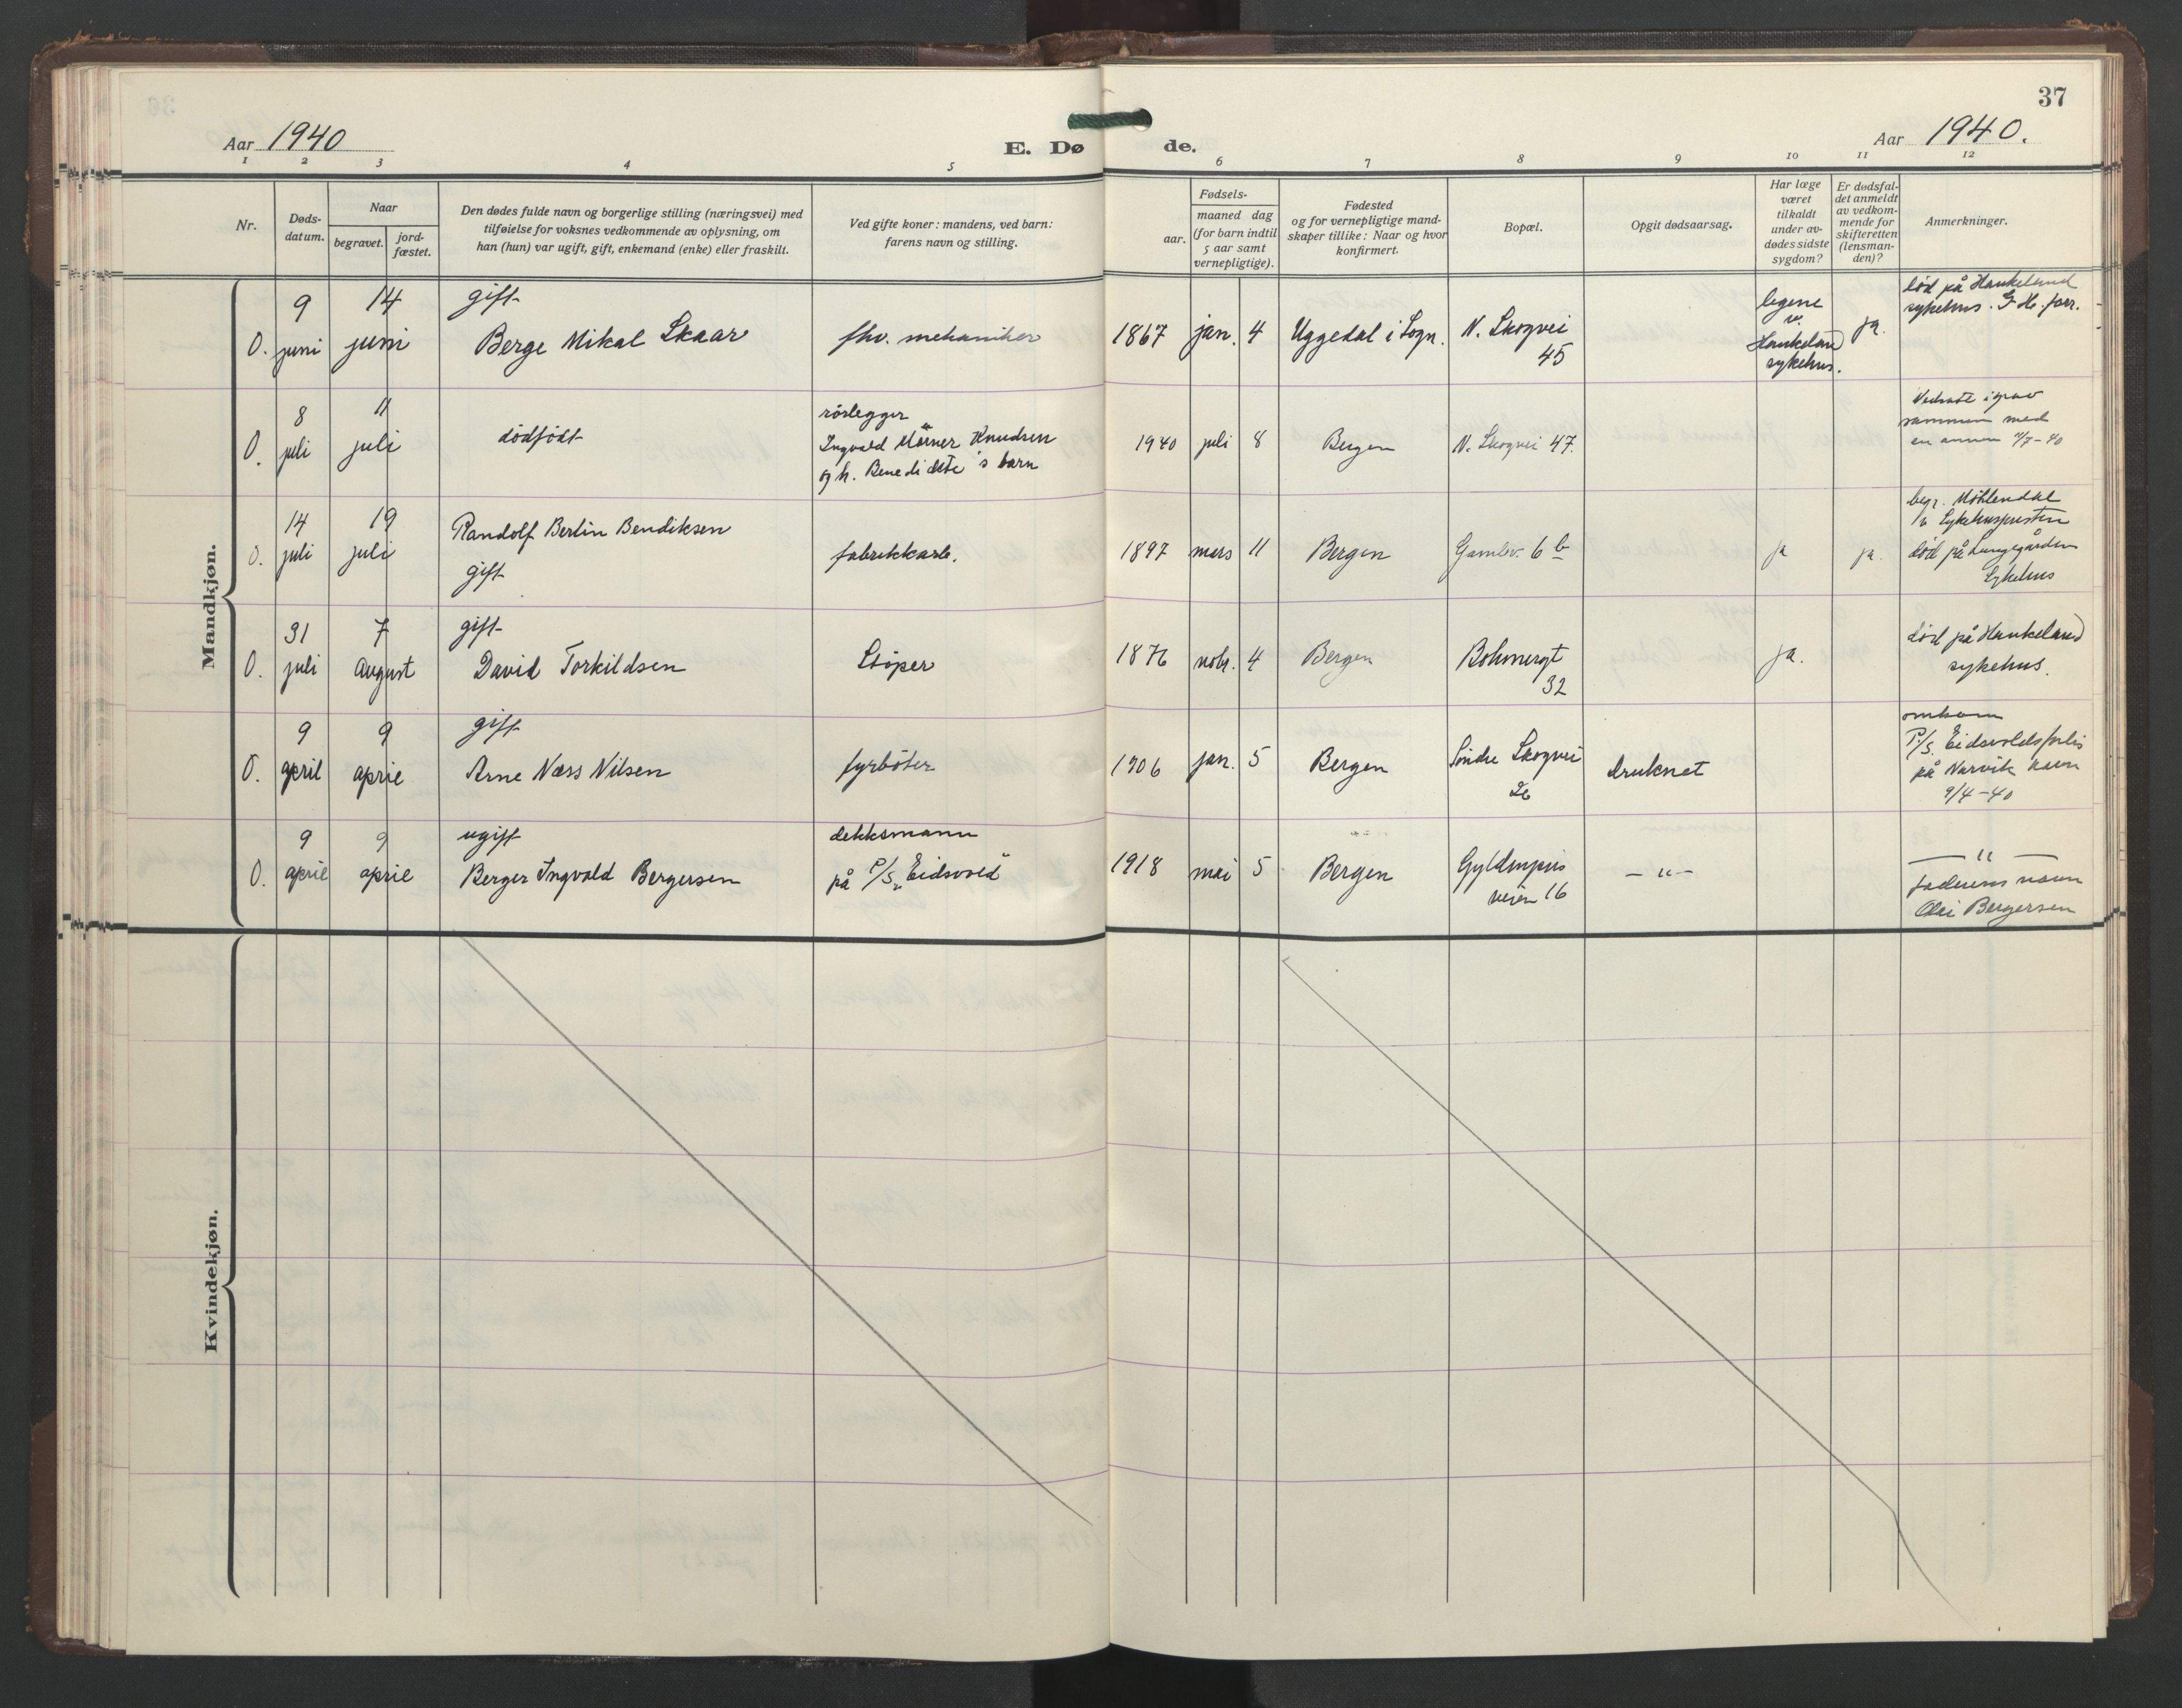 37
Aar 1940
E. Dø
de.
Aar 1940.
1 2 3 4 5 6 7 8 9 10 11 12
Nr.
Døds-
datum.
Naar
begravet.
jord-
fæstet.
Den dødes fulde navn og borgerlige stilling (næringsvei) med
tilføielse for voksnes vedkommende av oplysning, om
han (hun) var ugift, gift, enkemand (enke) eller fraskilt.
Ved gifte koner: mandens, ved barn:
farens navn og stilling.
Fødsels-
aar.
maaned dag
(for barn indtil
5 aar samt
vernepligtige).
Fødested
og for vernepligtige mand-
skaper tillike: Naar og hvor
konfirmert.
Bopæl.
Opgit dødsaarsag.
Har læge
været
tilkaldt
under av-
dødes sidste
sygdom?
Er dødsfal-
det anmeldt
av vedkom-
mende for
skifteretten
(lensman-
den)?
Anmerkninger.
Mandkjøn.
O.
9
juni
14
juni
gift
Berge Mikal Skaar
fhv. mekaniker
1867 jan. 4
Uggedal i Sogn.
N. Skogvei
45
legene
v.
Haukeland
sykehus.
ja.
død på Haukeland
sykehus. G. H. forr.
O.
8
juli
11
juli
dødfødt
rörlegger
Ingvald Mörner Knudsen
og h. Benedicte's barn
1940 juli 8
Bergen
N. Skogvei 47.
Nedsatt i grav
sammen med
en annen 11/7-40
O.
14
juli
19
juli
Randolf Bertin Bendiksen
gift
fabrikkarb.
1897 mars 11
Bergen
Gamlev. 6 b
ja
ja.
begr. Möhlendal
v. Sykehuspresten
død på Lungegården
Sykehus
O.
31
juli
7
august
gift
David Torkildsen
Støper
1876 nobr. 4
Bergen
Bohmergt
32
ja.
død på Haukeland
sykehus.
O.
9
april
9
april
gift
Arne Næss Nilsen
fyrbøter
1906 jan. 5
Bergen
Söndre Skogvei
druknet
omkom
P/S. Eidsvolds forlis
på Narvik havn
9/4-40
O.
9
april
9
april
ugift
Berger Ingvald Bergersen
dekksmann
på P/S „Eidsvold"
1918 mai 5
Bergen
Gyldenpris
veien 16
— " —
— " —
faderens navn
Bergersen
Kvindekjøn.